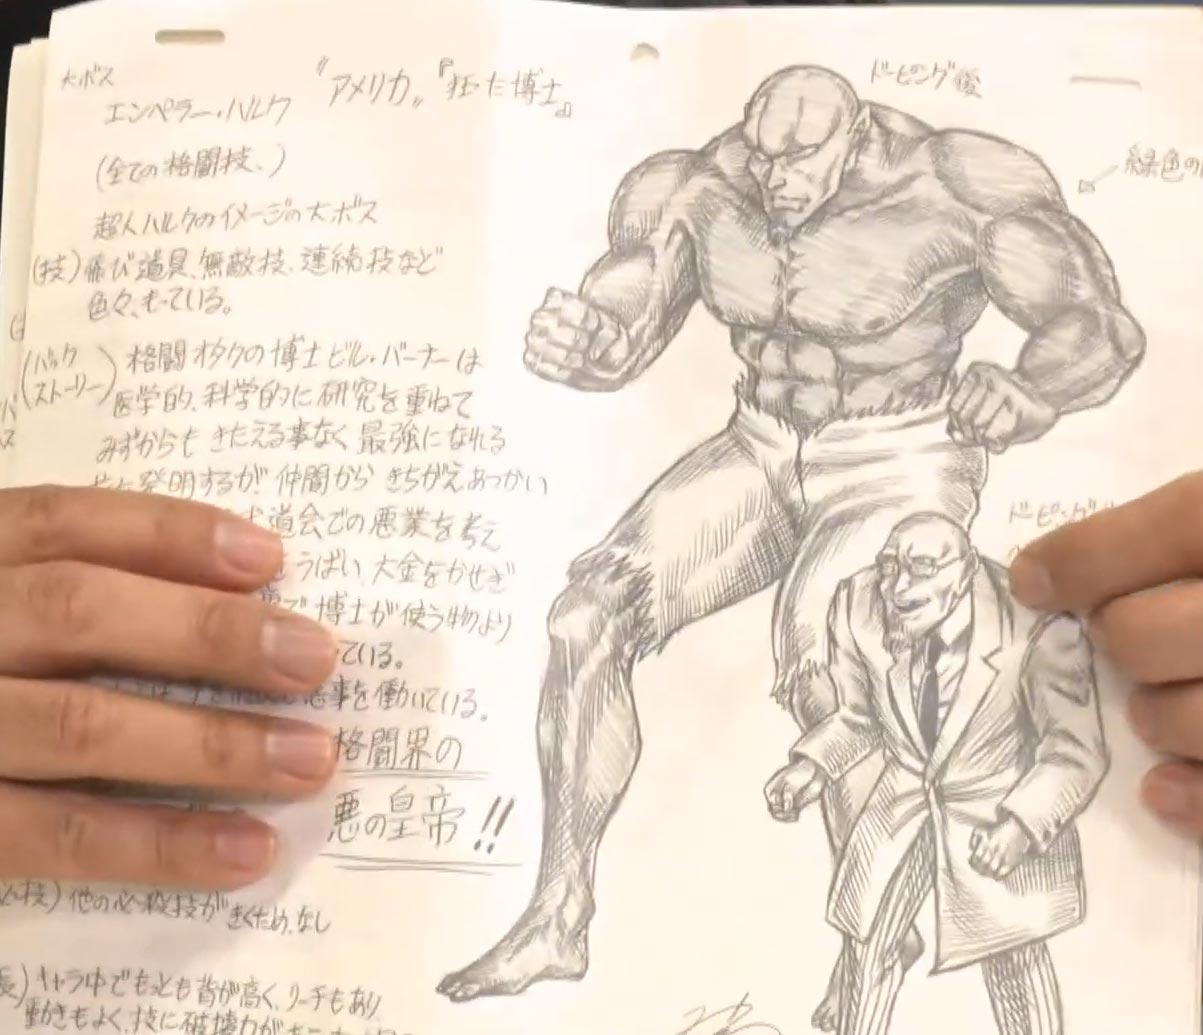 大ボス
エンペラー・ハルク
"アメリカ"『狂った博士』
(全ての格闘技、)
超人ハルクのイメージの大ボス
(技)飛び道具、無敵技、連続技など
色々、もっている。
(バックストーリー)格闘オタクの博士ビル・バーナーは
医学的、科学的に研究を重ねて
みずからもきたえる事なく最強になれる
発明するが仲間からきちがえあつかい
道会での悪業を考え
うばい、大金をかせぎ
で博士が使う物より
ている。
悪事を働いている。
格闘界の
悪の皇帝!!
技)他の必殺技がきくため、なし
長)キャラ中でもっとも背が高く、リーチもあり
動きもよく、技に破壊力が
ドーピング後
緑色の
ドーピング